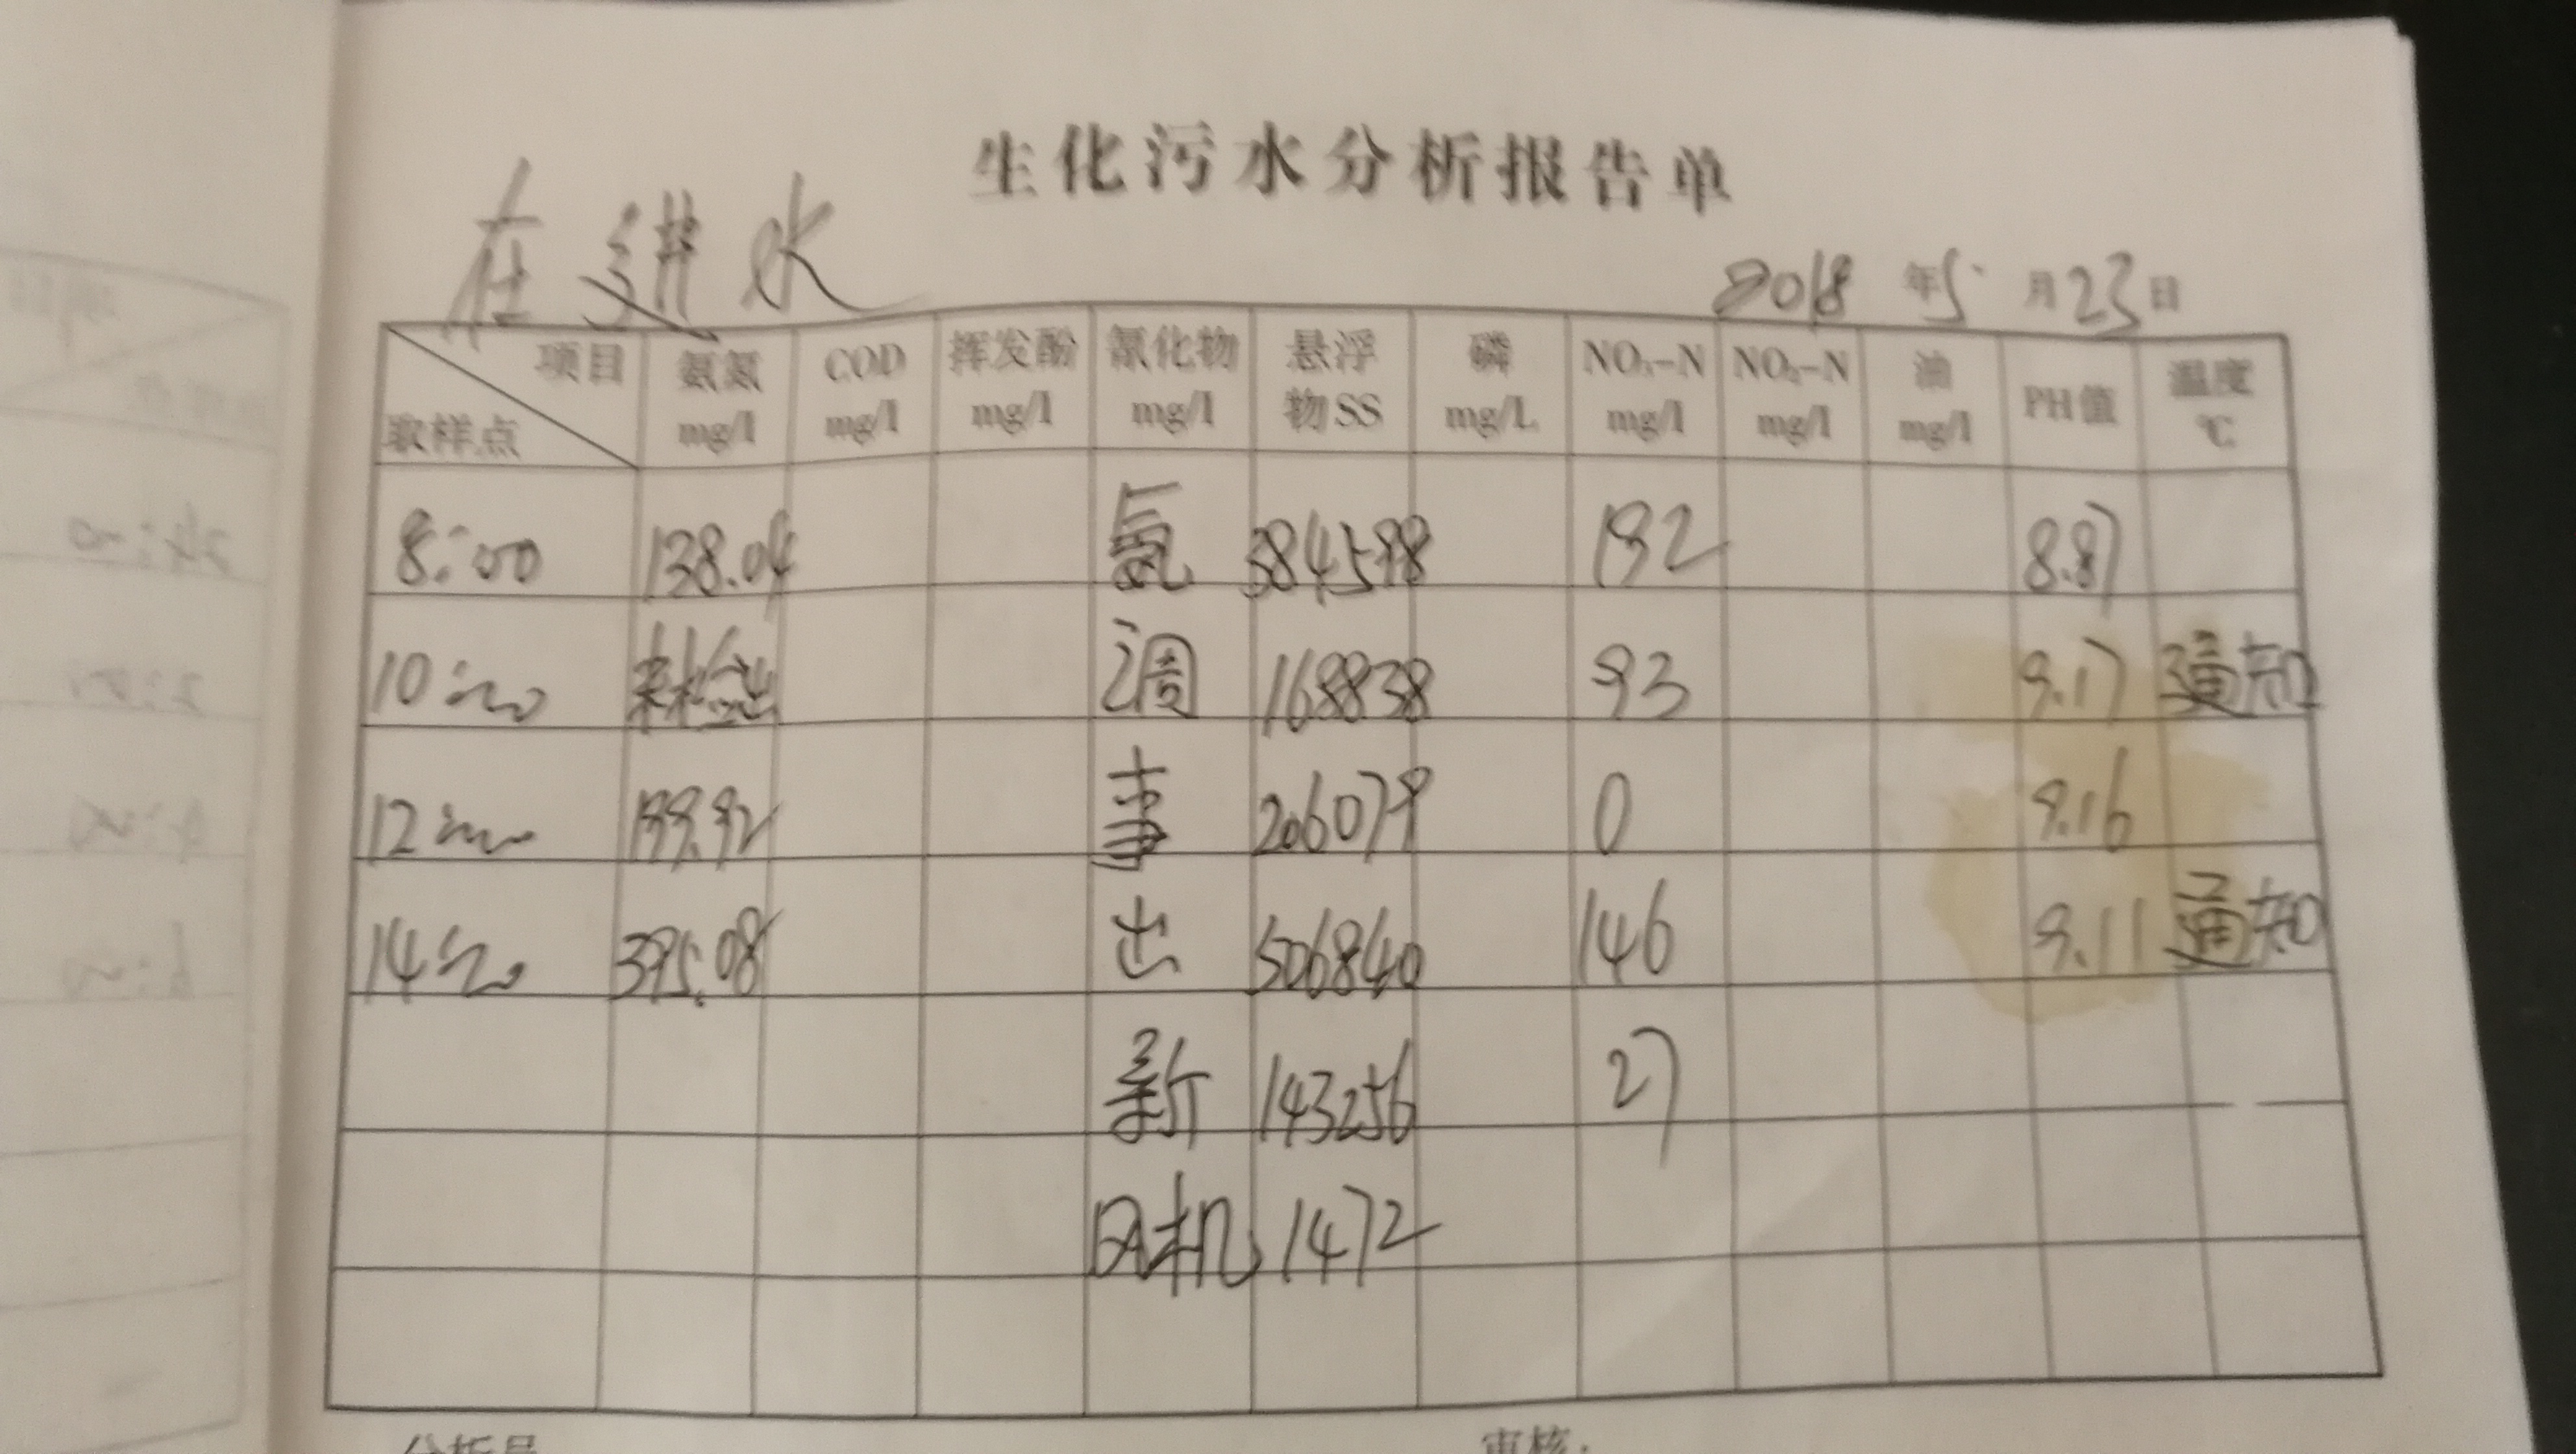 生化污水分析报告单
在进水
2018年5月23日
项目 取样点 氨氮 mg/l COD mg/l 挥发酚 mg/l 氰化物 mg/l 悬浮物SS 磷 mg/L NO₃-N mg/l NO₂-N mg/l 油 mg/l PH值 温度 ℃
8:00 138.04 氨 384598 192 8.87
10:00 未检出 调 168838 93 9.17 通知
12:00 199.92 事 206079 0 9.16
14:00 395.08 出 506840 146 9.11 通知
新 143256 27
风机 1472
分析员 审核: